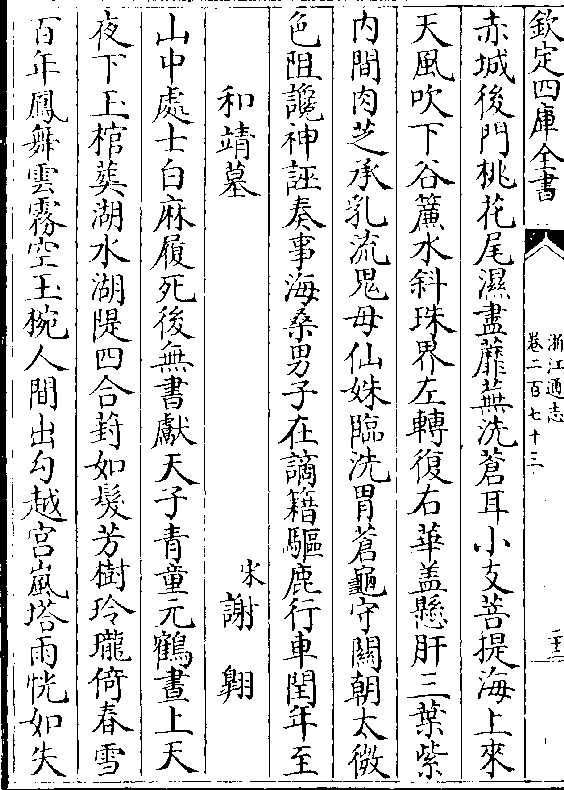 欽定四庫全書
浙江通志
卷二百七十三
二十二
赤城後門桃花尾濕盡蘼蕪洗蒼耳小支菩提海上來
天風吹下谷簾水斜珠界左轉復右華盖懸肝三葉紫
内間肉芝承乳流鬼母仙姝臨洗胃蒼龜守關朝太微
色阻讒神誣奏事海桑男子在謫籍驅鹿行車閏年至
和靖墓
宋謝翱
山中處士白麻履死後無書獻天子青童元鶴晝上天
夜下玉棺葬湖水湖隄四合葑如髮芳樹玲瓏倚春雪
百年鳳舞雲霧空玉椀人間出勾越宫嵐塔雨恍如失